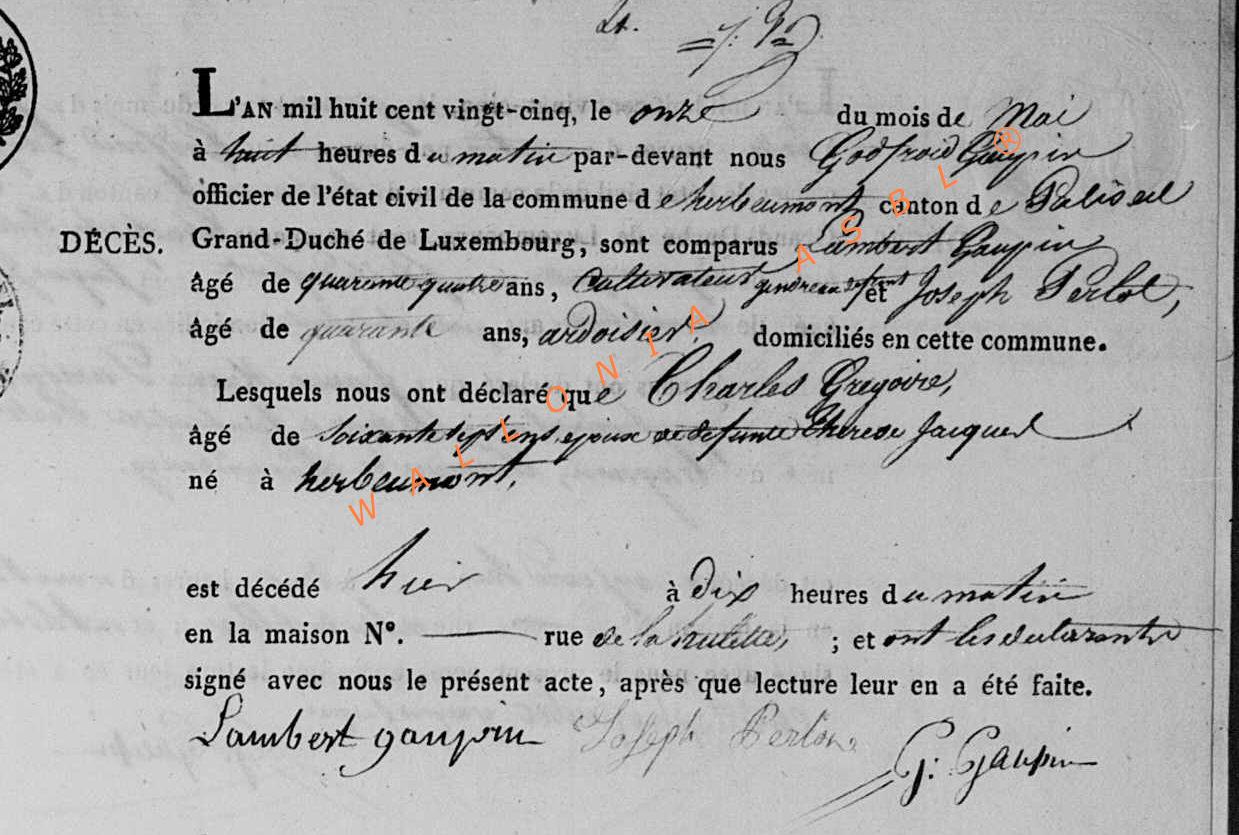 21.
L'AN mil huit cent vingt-cinq, le onze du mois de Mai
à huit heures du matin par-devant nous Godfroid Gaupin
officier de l'état civil de la commune de herbeumont canton de Paliseul
DÉCÈS. Grand-Duché de Luxembourg, sont comparus Lambert Gaupin
âgé de quarante quatre ans, Cultivateur gendre au défunt et Joseph Perlot,
âgé de quarante ans, ardoisier. domiciliés en cette commune.
Lesquels nous ont déclaré que Charles Gregoire,
âgé de soixante sept ans, epoux de defunte Therese Jacques
né à herbeumont.
est décédé hier à dix heures du matin
en la maison N°. rue de la ; et ont les declarants
signé avec nous le présent acte, après que lecture leur en a été faite.
Lambert gaupin Joseph G: Gaupin
WALLONIA ASBL ®